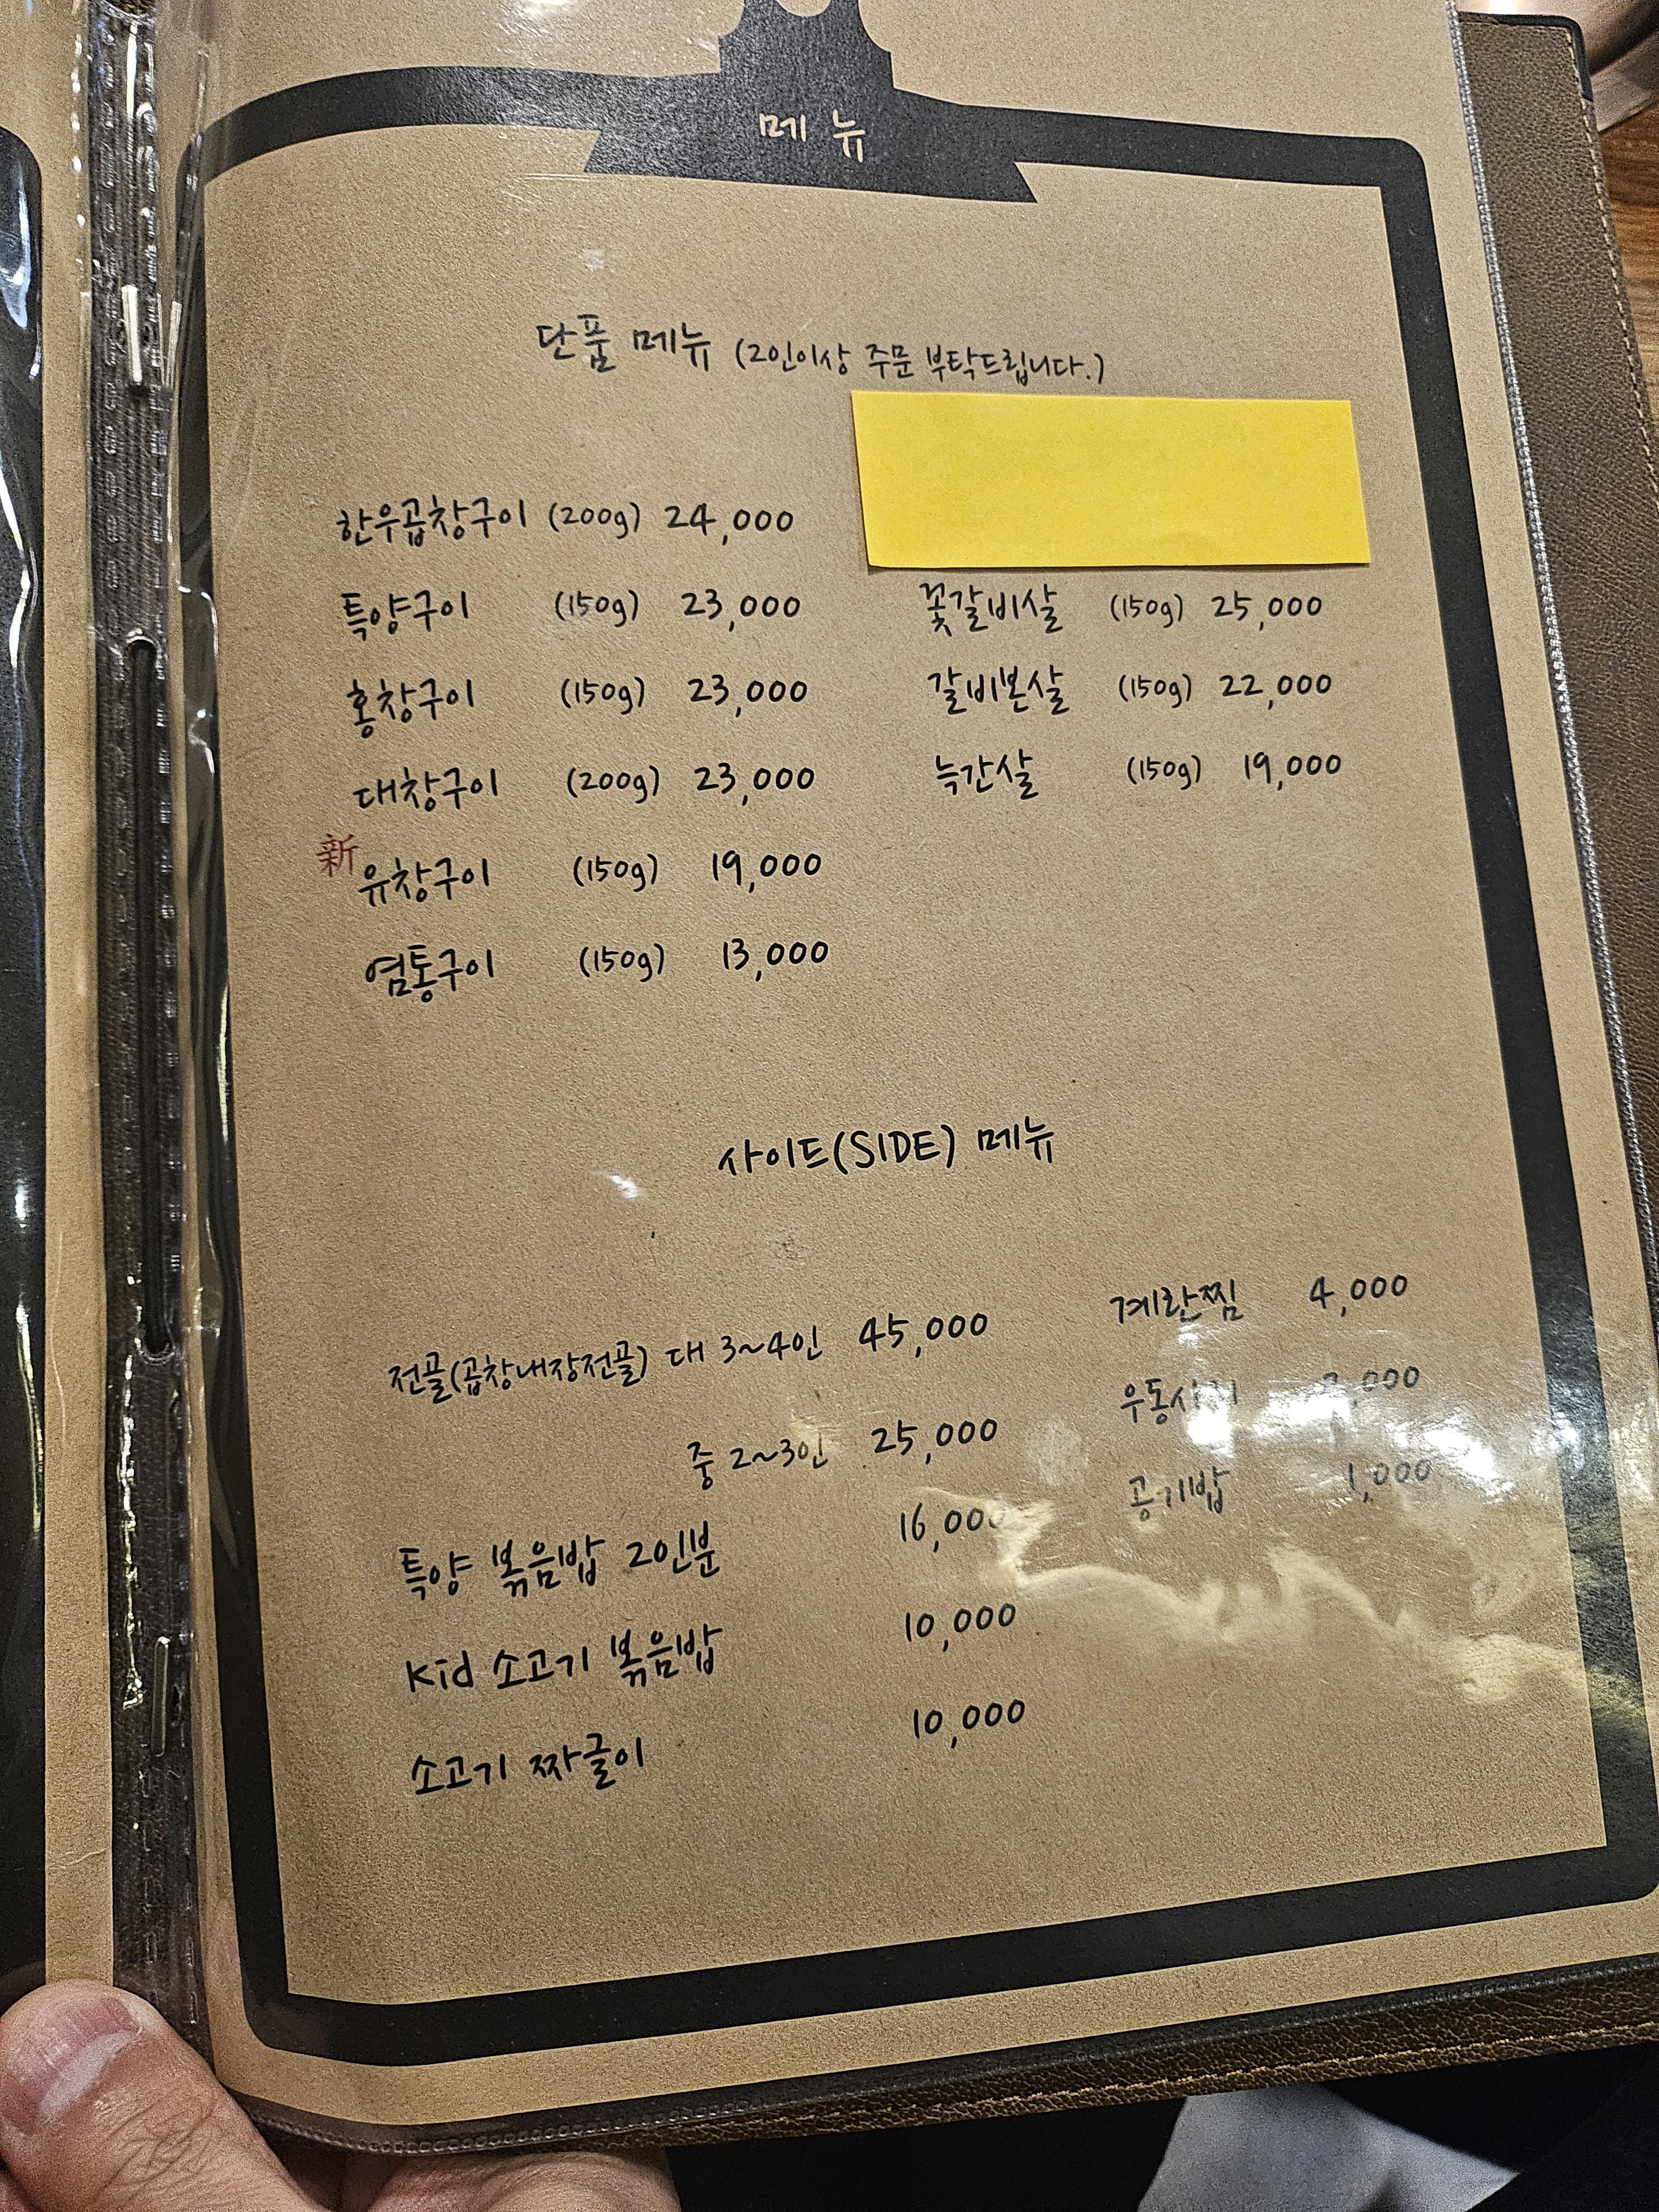 메뉴
단품 메뉴 (2인이상 주문 부탁드립니다.)
한우곱창구이 (200g) 24,000
특양구이 (150g) 23,000
홍창구이 (150g) 23,000
대창구이 (200g) 23,000
新 유창구이 (150g) 19,000
염통구이 (150g) 13,000
꽃갈비살 (150g) 25,000
갈비본살 (150g) 22,000
늑간살 (150g) 19,000
사이드(SIDE) 메뉴
전골(곱창내장전골) 대 3~4인 45,000
중 2~3인 25,000
특양 볶음밥 2인분 16,000
Kid 소고기 볶음밥 10,000
소고기 짜글이 10,000
계란찜 4,000
공기밥 1,000